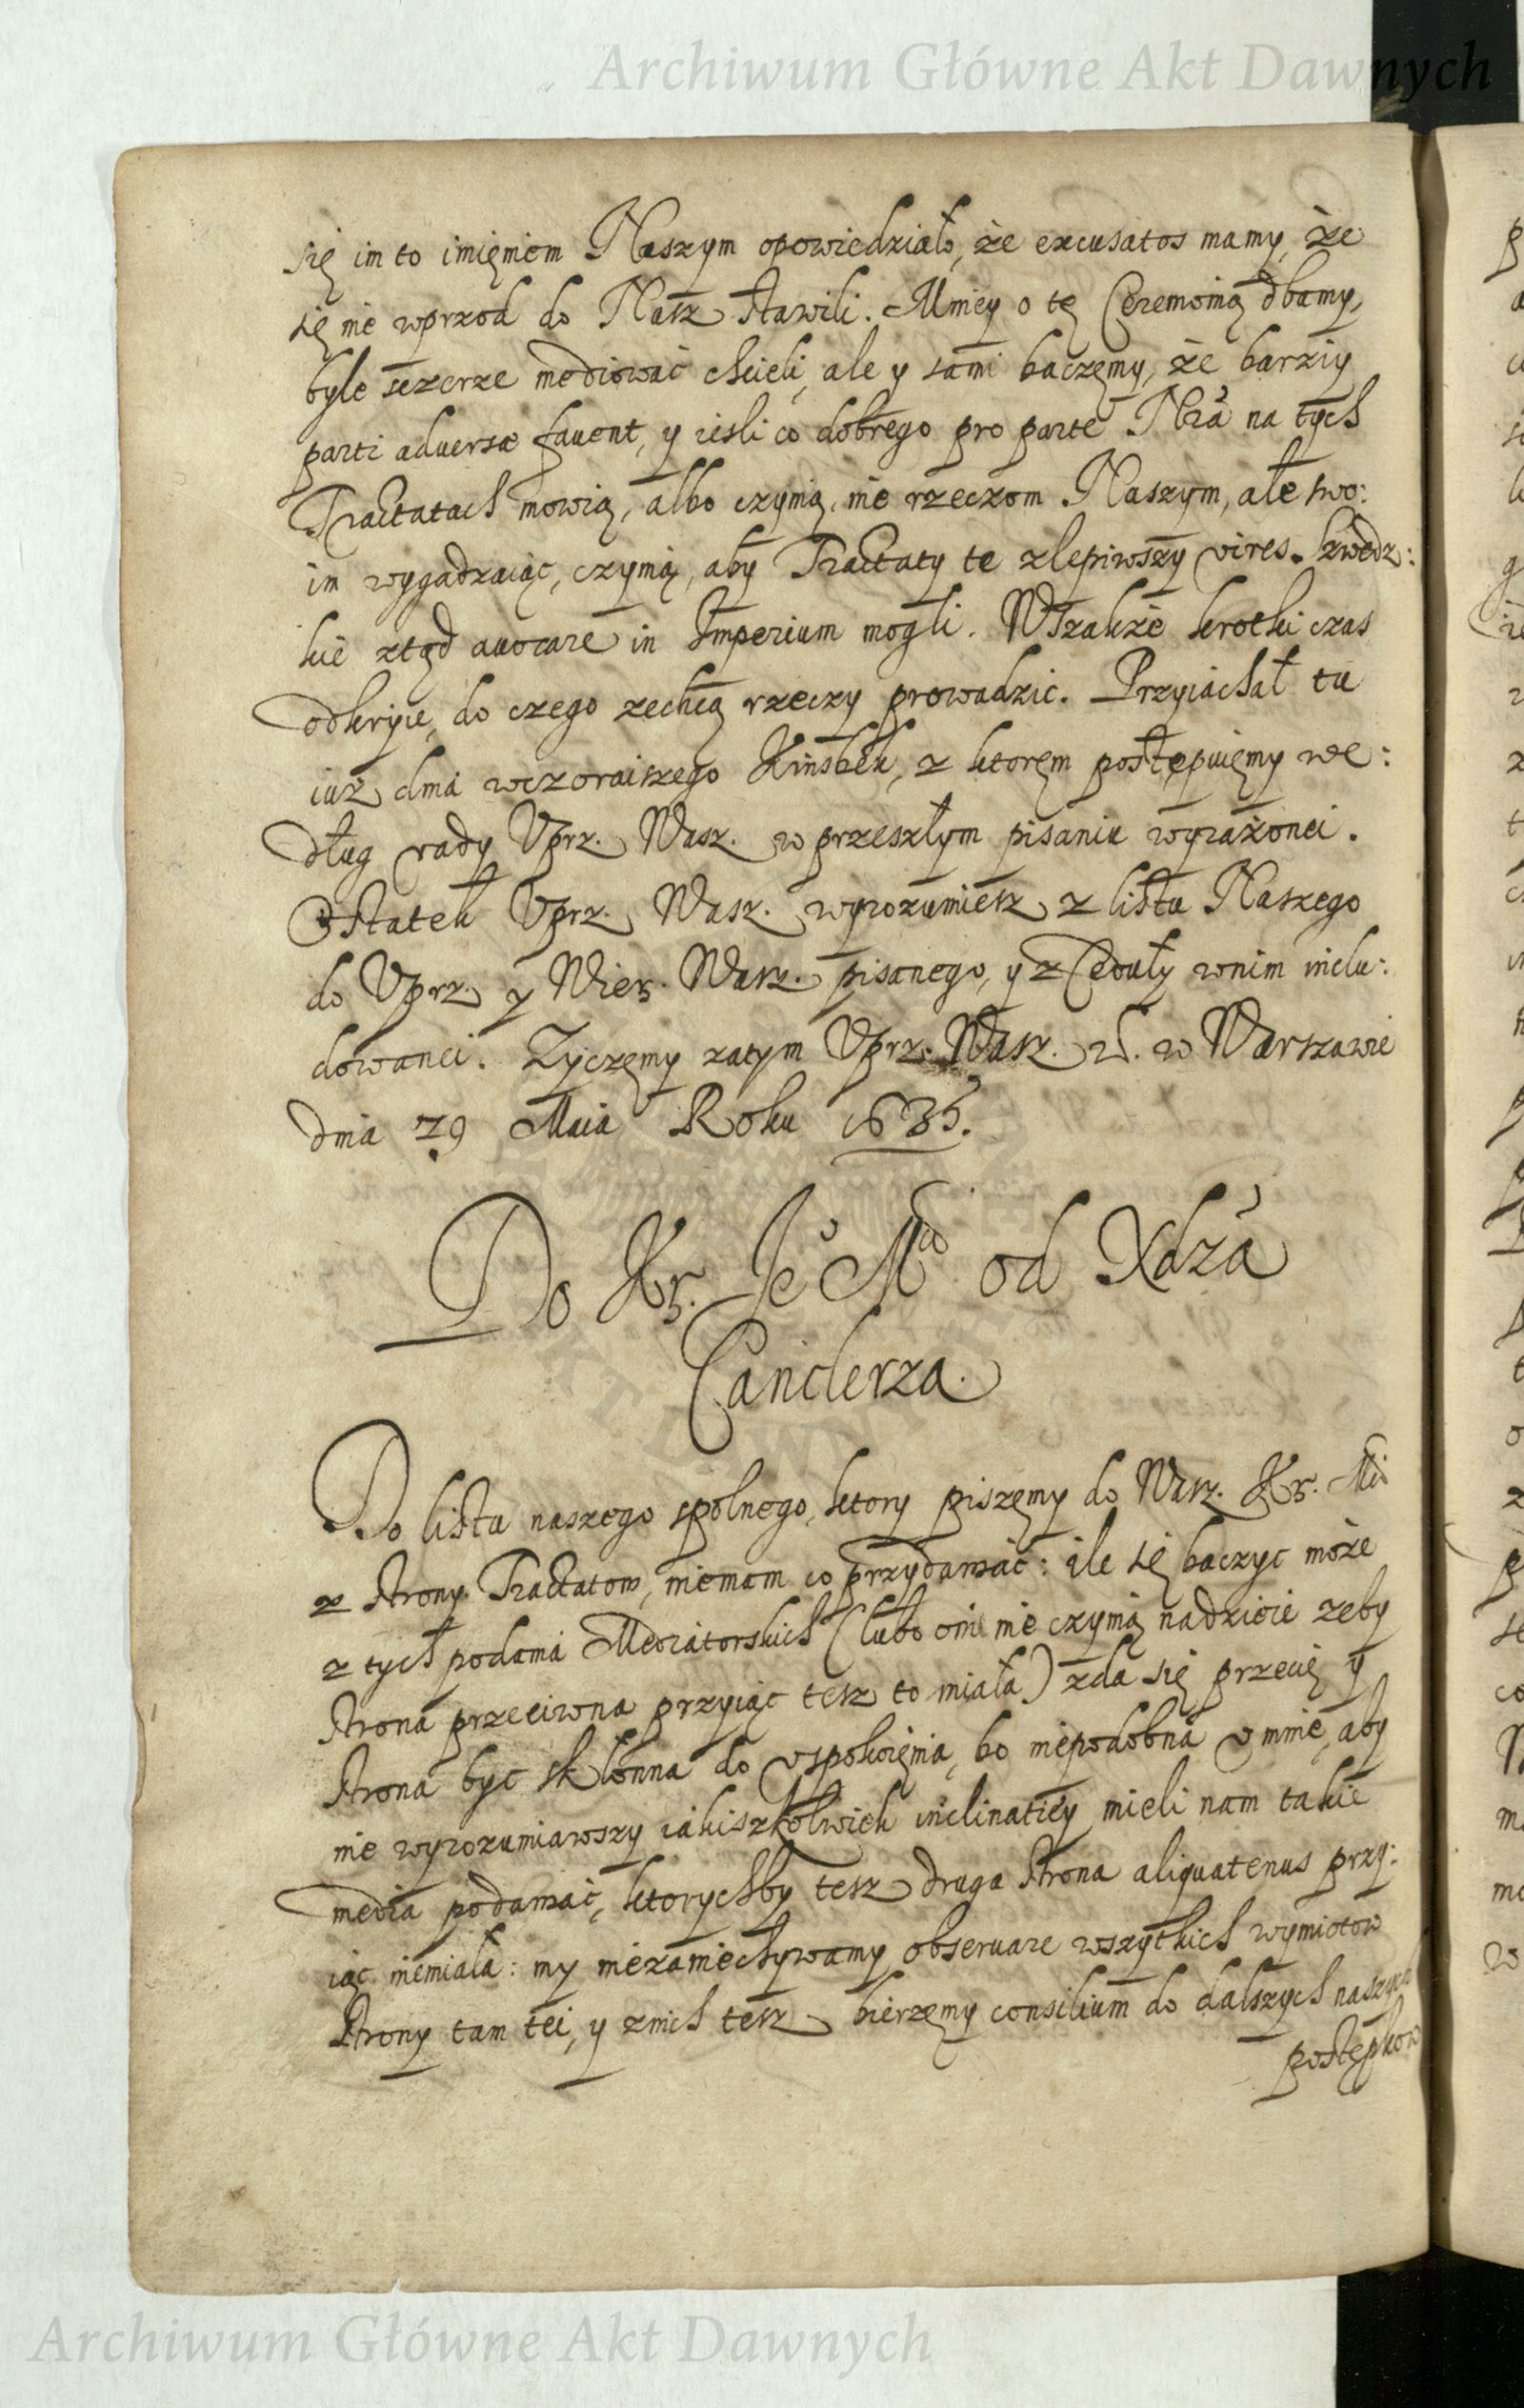 Archiwum Główne Akt Dawnych
się im to imięniem Naszym opowiedziało, że excusatos mamy, że
się nie wprzod do Nasz stawili. Mniey o tę Ceremonią dbamy,
byle sczerze mediować chcieli, ale y sami baczęmy, że barziy
parti adversæ favent, y iesli co dobrego pro parte Nrã na tych
Tractatach mowią, albo czynią, nie rzeczom Naszym, ale swo:
im wygadzaiąc, czynią, aby Tractaty te zlepiwszy vires Szwedz:
kie ztąd avocare in Imperium mogli. Wszakże krotki czas
odkryie, do czego zechcą rzeczy prowadzic. Przyiachał tu
iuż dnia wczoraiszego Kinsbek, z ktoręm postępuięmy we:
dług rady Vprz. Wasz. w przeszłym pisaniu wyrażonei.
Ostatek Vprz. Wasz. wyrozumiesz z listu Naszego
do Vprz. y Wier. Wasz. pisanego, y z Ceduły wnim inclu:
dowanei. Zyczęmy zatym Vprz. Wasz. w Warszawie
dnia 29 Maia Roku 1635.
Do Kr. Je° Mci od Xdza
Canclerza.
Do listu naszego spolnego, ktory piszęmy do Wasz. Kr. Mci
z strony Tractatow, niemam co przydawać: ile się baczyc może
z tych podania Mediatorskich (lubo oni nie czynią nadzieie zeby
strona przeciwna przyiąc tesz to miała) zda się przecię y
strona byc sklonna do vspokoięnia, bo niepodobna v mnie, aby
nie wyrozumiawszy iakiszkolwiek inclinatiey mieli nam takie
media podawać, ktorychby tesz druga strona aliquatenus przy:
iąc niemiała: my niezaniechywamy observare wszytkich wymiotow
strony tam tei, y znich tesz bierzęmy consilium do dalszych naszych
postępkow
Archiwum Główne Akt Dawnych